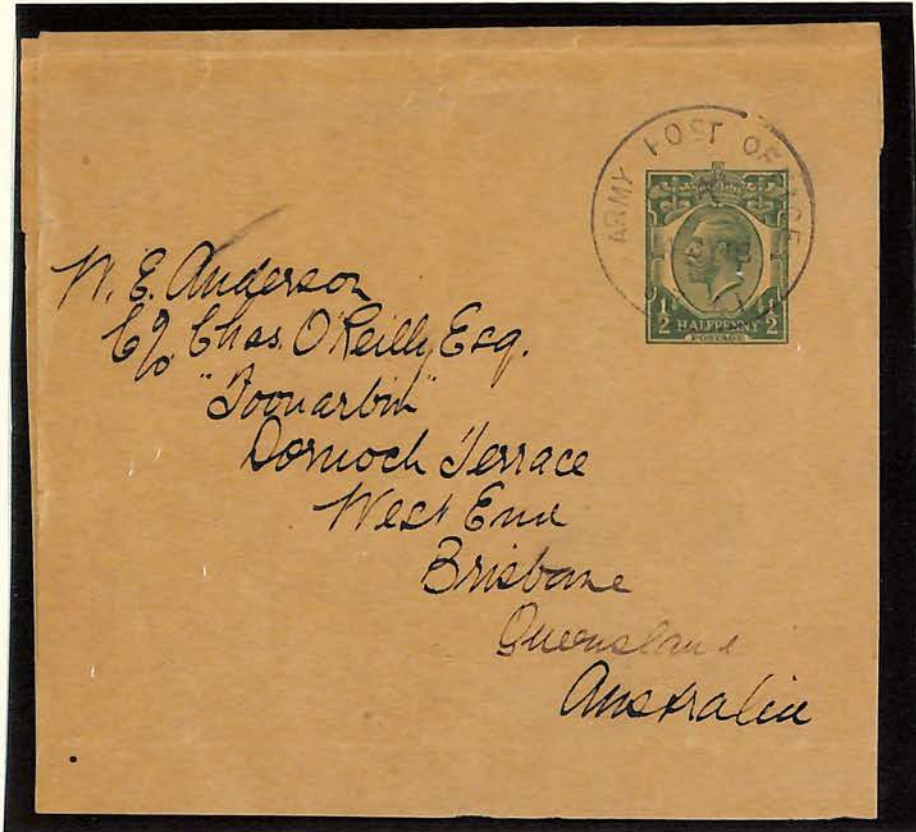 ARMY POST OFFICE
1/2 HALFPENNY 1/2
POSTAGE
N. E. Anderson
C/o. Chas. O'Reilly, Esq.
"Toonarbin"
Dornoch Terrace
West End
Brisbane
Queensland
Australia